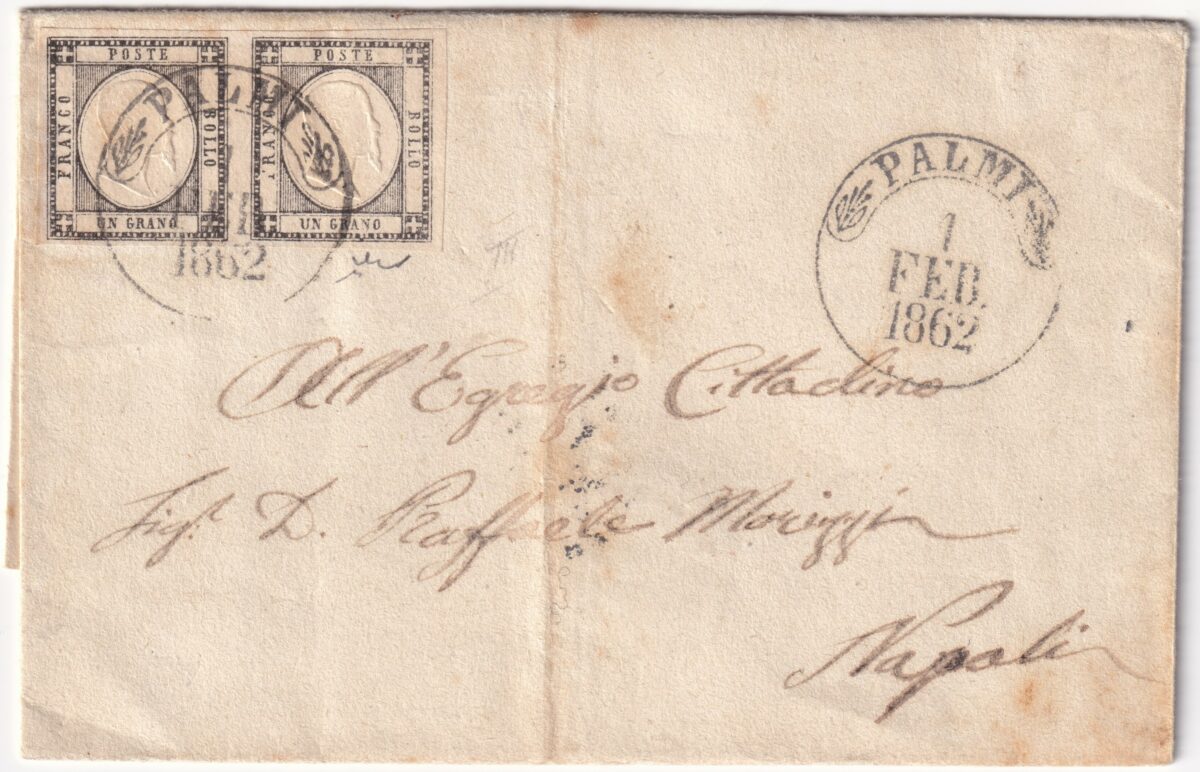 POSTE
FRANCO
BOLLO
UN GRANO
POSTE
FRANCO
BOLLO
UN GRANO
PALMI
1
FEB.
1862
PALMI
1
FEB.
1862
All'Egregio Cittadino
Sigr. D. Raffaele
Napoli